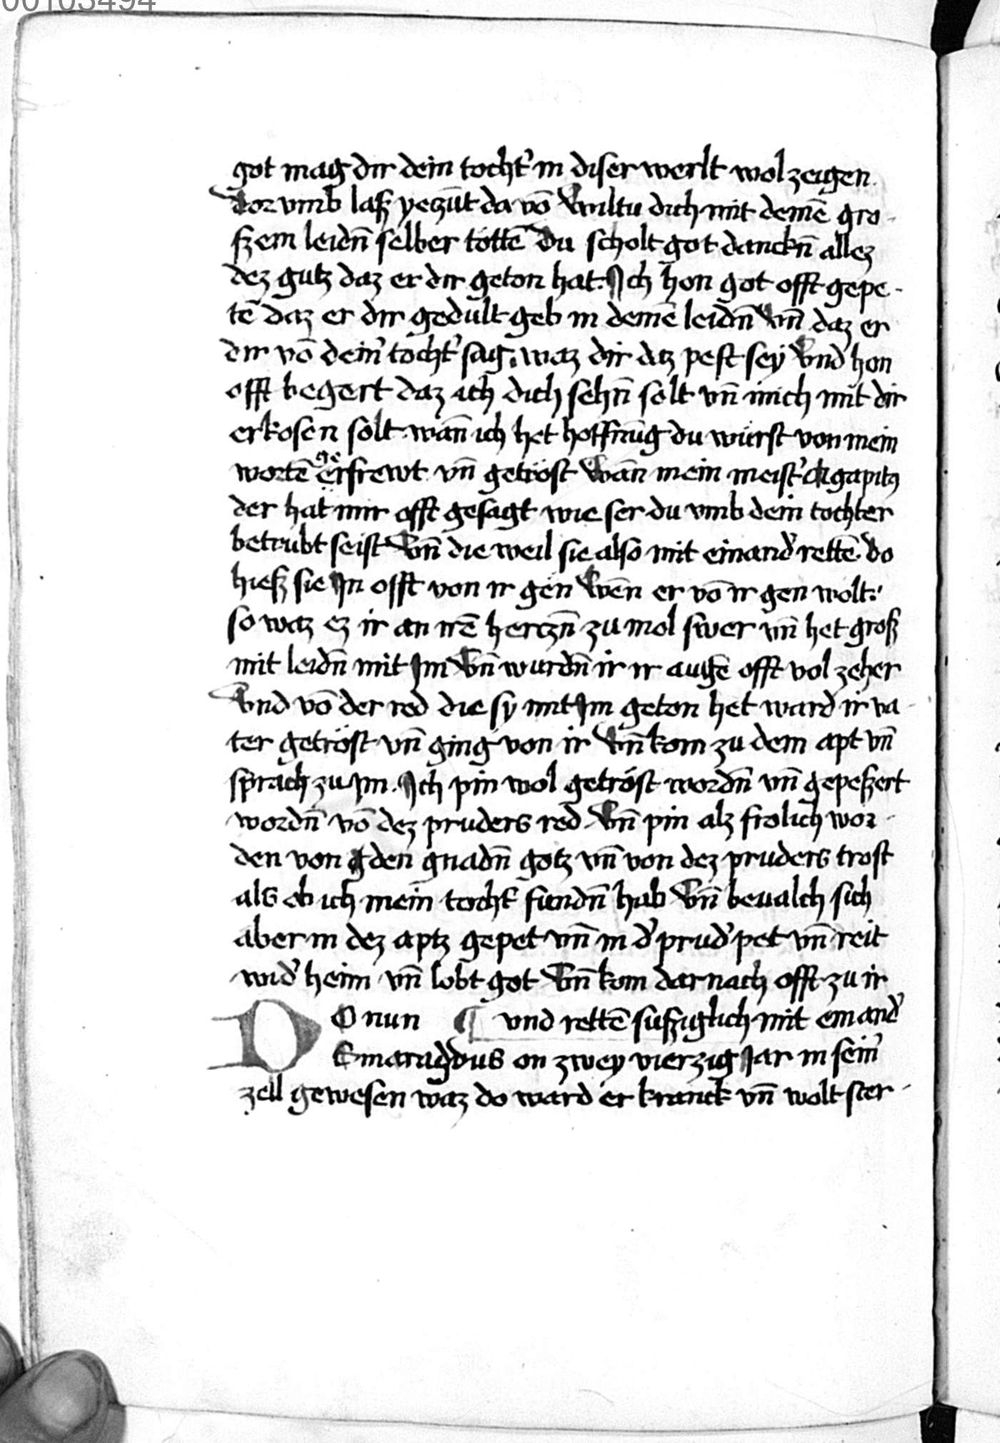 00103494
got mag dir dein tocht' in diser werlt wol zeigen
Dor vmb laß yeczūt da vō Wiltu dich mit deinē gro-
ßem leidn̄ selber tottē Du scholt got danckn̄ allez
dez gutz daz er dir geton hat. Ich hon got offt gepe-
tē daz er dir gedult geb in deinē leidn̄ Vn̄ daz er
dir vō dein' tocht' sag, waz dir daz pest sey Vnd hon
offt begert daz ich dich sehn̄ solt vn̄ mich mit dir
erkosen solt wān ich het hoffnūg du würst von mein
wortē erfrewt vn̄ getröst Wān mein meist' Agapitꝰ
der hat mir offt gesagt wie ser du vmb dein tochter
betrubt seist Vn̄ die weil sie also mit einand' rettē do
hieß sie In offt von ir gen Wēn er vō ir gen wolt.
so waz ez ir an irē herczn̄ zu mol swer vn̄ het groß
mit leidn̄ mit Im Vn̄ wurdn̄ ir ir augē offt vol zeher
Vnd vō der red die sy mit Im geton het ward ir va-
ter getröst vn̄ ging von ir Vn̄ kom zu dem apt vn̄
sprach zu Im. Ich pin wol getröst wordn̄ vn̄ gepeßert
wordn̄ vō dez pruders red Vn̄ pin alz frolich wor-
den von den gnadn̄ gotz vn̄ von dez pruders trost
als ob ich mein tocht' fundn̄ hab Vn̄ beualch sich
aber in dez aptz gepet vn̄ in d' prud' pet vn̄ reit
wid' heim vn̄ lobt got Vn̄ kom dar nach offt zu ir
DO nun ¶ vnd rettē sußiglich mit einand'
Emaragdus on zwey vierzig Iar in sein'
zell gewesen waz do ward er kranck vn̄ wolt ster-